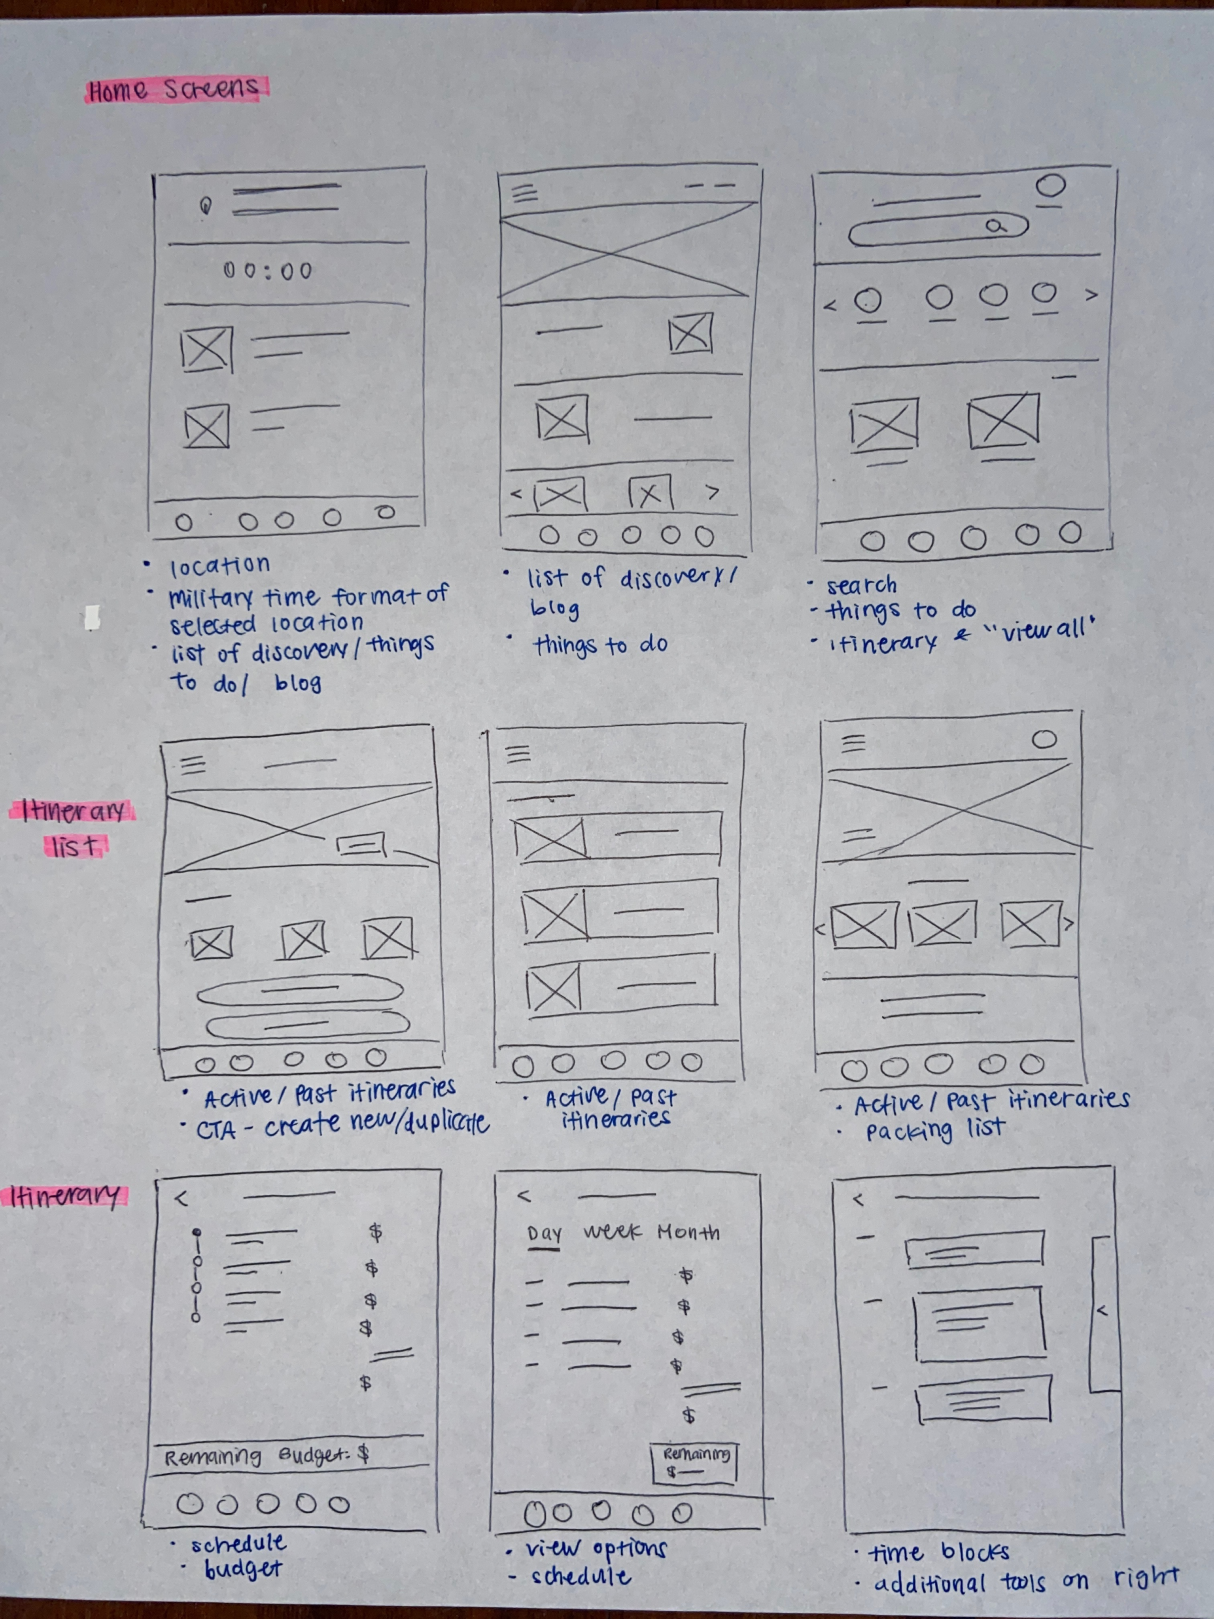 Home Screens
00:00
• location
• military time format of
selected location
• list of discovery/things
to do/ blog
• list of discovery/
blog
• things to do
• search
- things to do
• itinerary & "view all"
Itinerary
list
• Active/past itineraries
• CTA - create new/duplicate
• Active/past
itineraries
• Active/past itineraries
• packing list
Itinerary
<
$
$
$
$
$
Remaining Budget: $
• schedule
• budget
<
Day Week Month
$
$
$
$
$
Remaining
$ —
• view options
- schedule
<
<
• time blocks
• additional tools on right